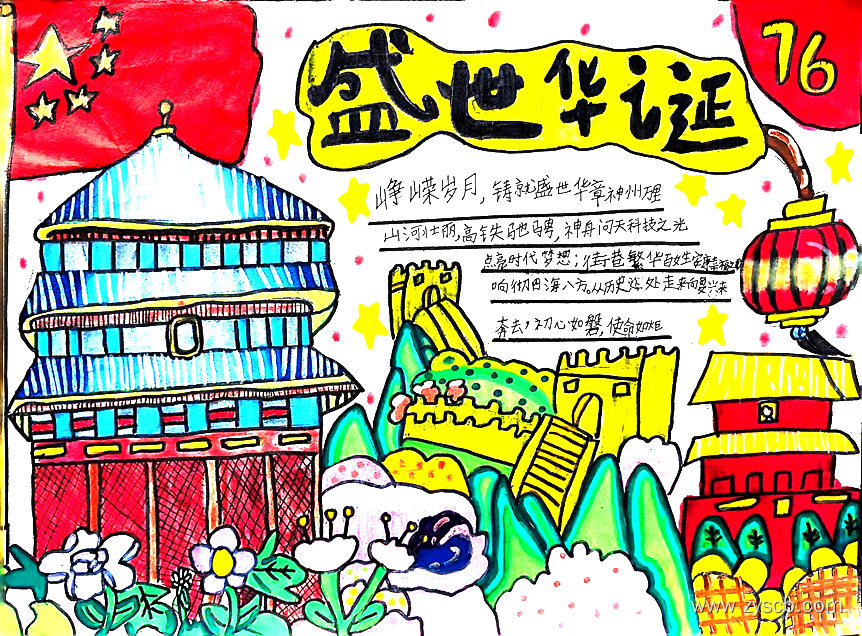 盛世华诞
76
峥嵘岁月,铸就盛世华章神州大理
山河壮丽,高铁驰骋,神舟问天科技之光
点亮时代梦想;街巷繁华百姓安康
响彻四海八方,从历史深处走来向复兴
奔去,初心如磐,使命如炬
www.zyscb.com